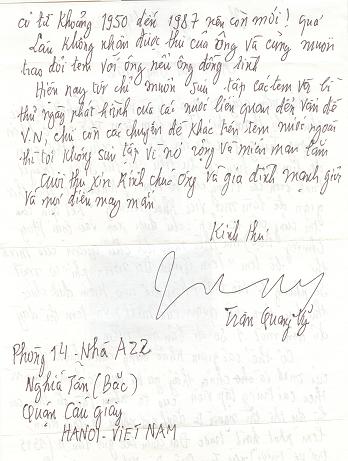 cũ từ khoảng 1950 đến 1987 nên còn mới! quá
lâu không nhận được thư của ông và cũng muốn
trao đổi tem với ông nếu ông đồng tình
Hiện nay tôi chỉ muốn sưu tập các tem và bì
thư ngày phát hành của các nước liên quan đến vấn đề
V.N, chứ còn các chuyên đề khác trên tem nước ngoài
thì tôi không sưu tập vì nó rộng và miên man lắm
Cuối thư xin kính chúc ông và gia đình mạnh giỏi
và mọi điều may mắn
Kính thư
Trần Quang Vỹ
Phòng 14 - Nhà A22
Nghĩa Tân (Bắc)
Quận Cầu giấy
HANOI - VIET NAM